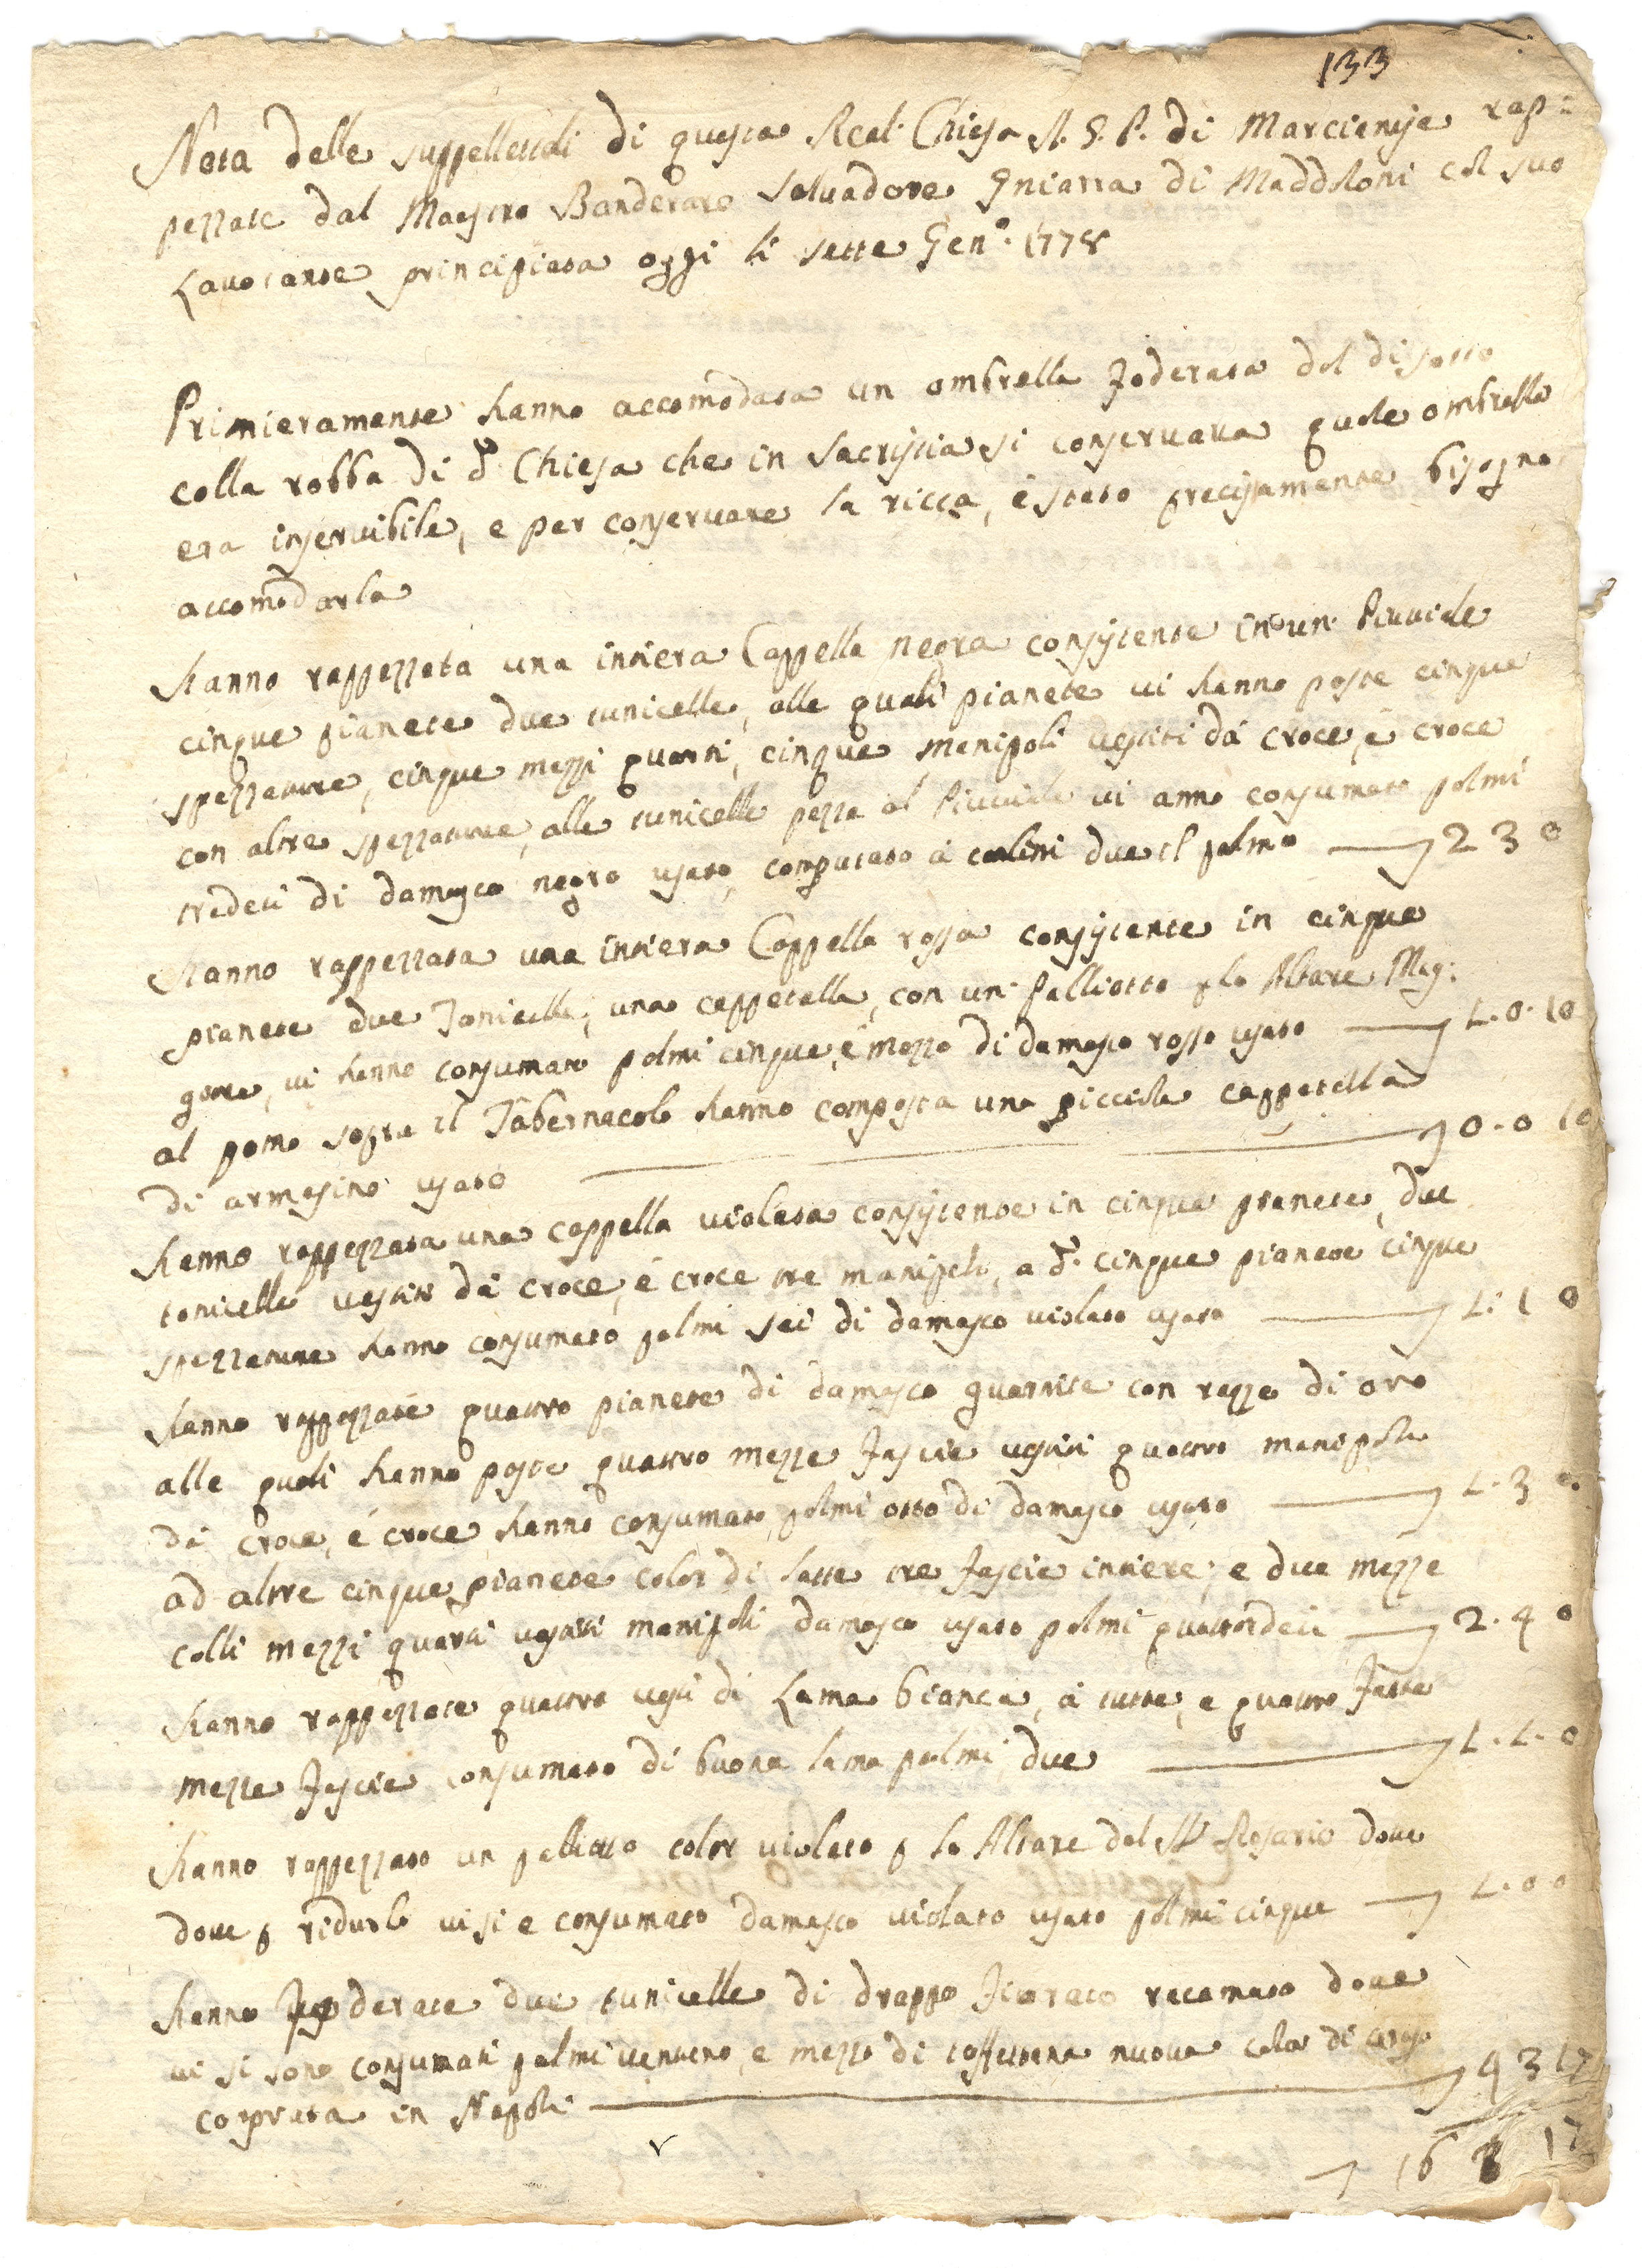 133
Nota delle suppellettili di questa Real Chiesa A. G. P. di Marcienise rap=
pezzate dal Maestro Banderaro Salvadore Gniarra di Maddaloni col suo
Lavorante principiata oggi li sette Gen.o 1778
Primieramente hanno accomodata un ombrella foderata dal disotto
colla robba di d.a Chiesa che in Sacristia si conservava quale ombrella
era inservibile, e per conservare la ricca, è stato precisamente bisogno
accomodarla
Hanno rappezzata una intiera Cappella negra consistente in un Piuviale
cinque pianete due tunicelle, alle quali pianete vi hanno poste cinque
spezzature, cinque mezzi quarti, cinque manipoli vestiti dà croce, è croce
con altre spezzature, alle tunicelle pezze al Piuviale vi anno consumato palmi
tredeci di damasco negro usato, computato à carlini due il palmo 2 3 0
Hanno rappezzata una intiera Cappella rossa consistente in cinque
pianete due Tonicelle, una cappetella, con un Palliotto p lo Altare Mag:
giore, vi hanno consumato palmi cinque, è mezzo di damasco rosso usato 1. 0. 10
al pomo sopra il Tabernacolo hanno composta una piccola cappetella
di armesino usato 0. 0 10
Hanno rappezzata una cappella violata consistente in cinque pianete, due
tonicelle vestiti dà croce, è croce tre manipoli, a d.e cinque pianete cinque
spezzature hanno consumato palmi sei di damasco violato usato 1. 1 0
Hanno rappezzate quattro pianete di damasco guarnite con rezze di oro
alle quali hanno poste quattro mezze fascie vestiti quattro manipoli
dà croce, è croce hanno consumato palmi otto di damasco usato 1. 3 0.
ad altre cinque pianete color di latte tre fascie intiere, e due mezze
colli mezzi quarti vestiti manipoli damasco usato palmi quattordeci 2. 4 0
Hanno rappezzate quattro vesti di Lama bianca, à tutte, e quattro fatte
mezze fascie consumato di buona lama palmi due 1. 1. 0
Hanno rappezzato un palliotto color violato p lo Altare del SS.o Rosario dove
dove p ridurlo vi si e consumato damasco violato usato palmi cinque 1. 0 0
Hanno foderate due tunicelle di drappo fiorato recamato dove
vi si sono consumati palmi ventuno, e mezzo di taffettana nuova color di
comprata in Napoli 4 3 17
16 3 17